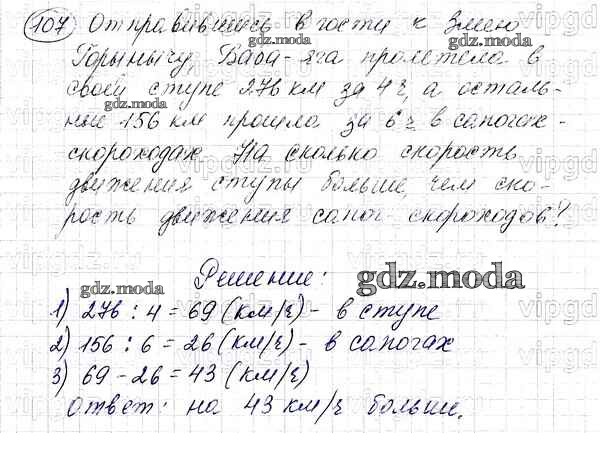 107 Отправившись в гости к Змею
Горынычу, Баба-яга пролетела в
своей ступе 276 км за 4 ч, а осталь-
ные 156 км прошла за 6 ч в сапогах-
скороходах. На сколько скорость
движения ступы больше, чем ско-
рость движения сапог-скороходов?
Решение:
1) 276 : 4 = 69 (км/ч) - в ступе
2) 156 : 6 = 26 (км/ч) - в сапогах
3) 69 - 26 = 43 (км/ч)
Ответ: на 43 км/ч больше.
gdz.moda